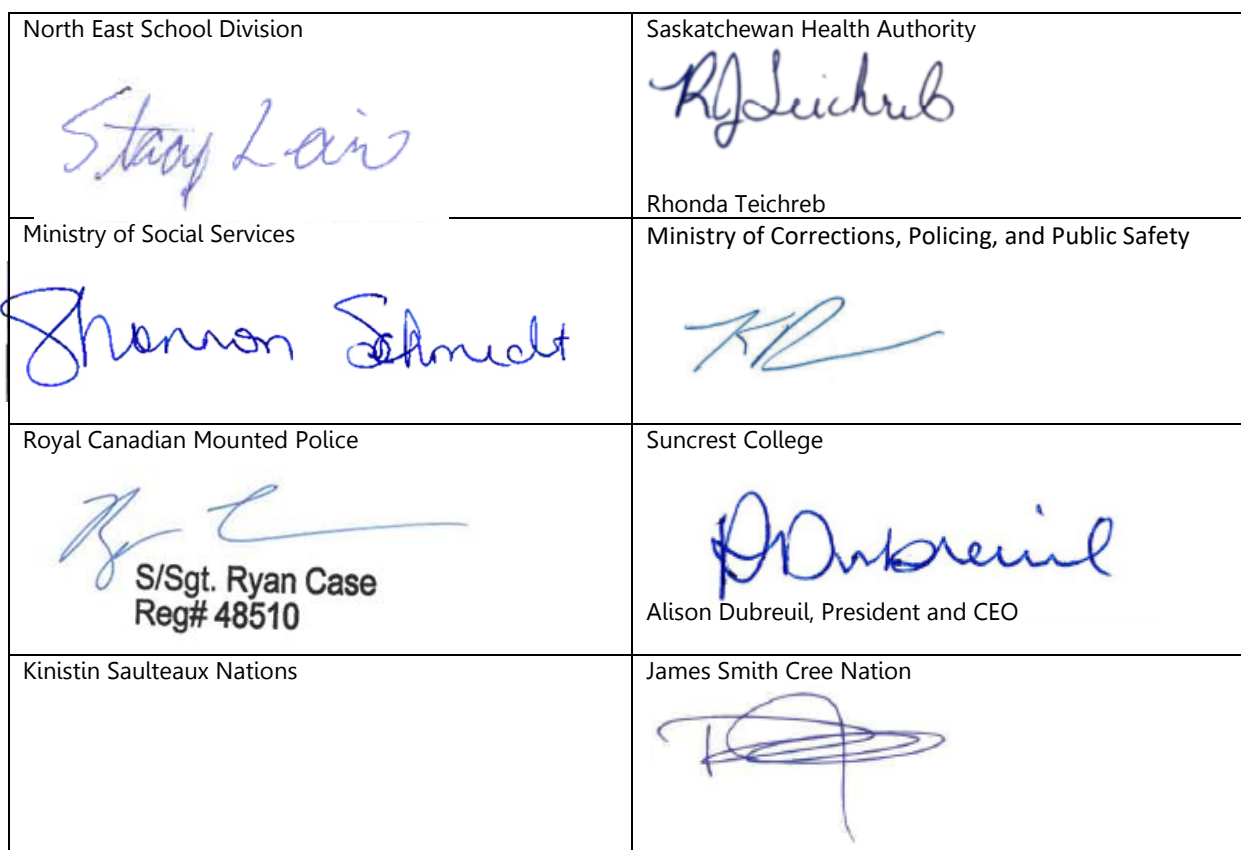 North East School Division
Stacy Lair
Saskatchewan Health Authority
RJTeichreb
Rhonda Teichreb
Ministry of Social Services
Shannon Schmidt
Ministry of Corrections, Policing, and Public Safety
Royal Canadian Mounted Police
S/Sgt. Ryan Case
Reg# 48510
Suncrest College
ADubreuil
Alison Dubreuil, President and CEO
Kinistin Saulteaux Nations
James Smith Cree Nation